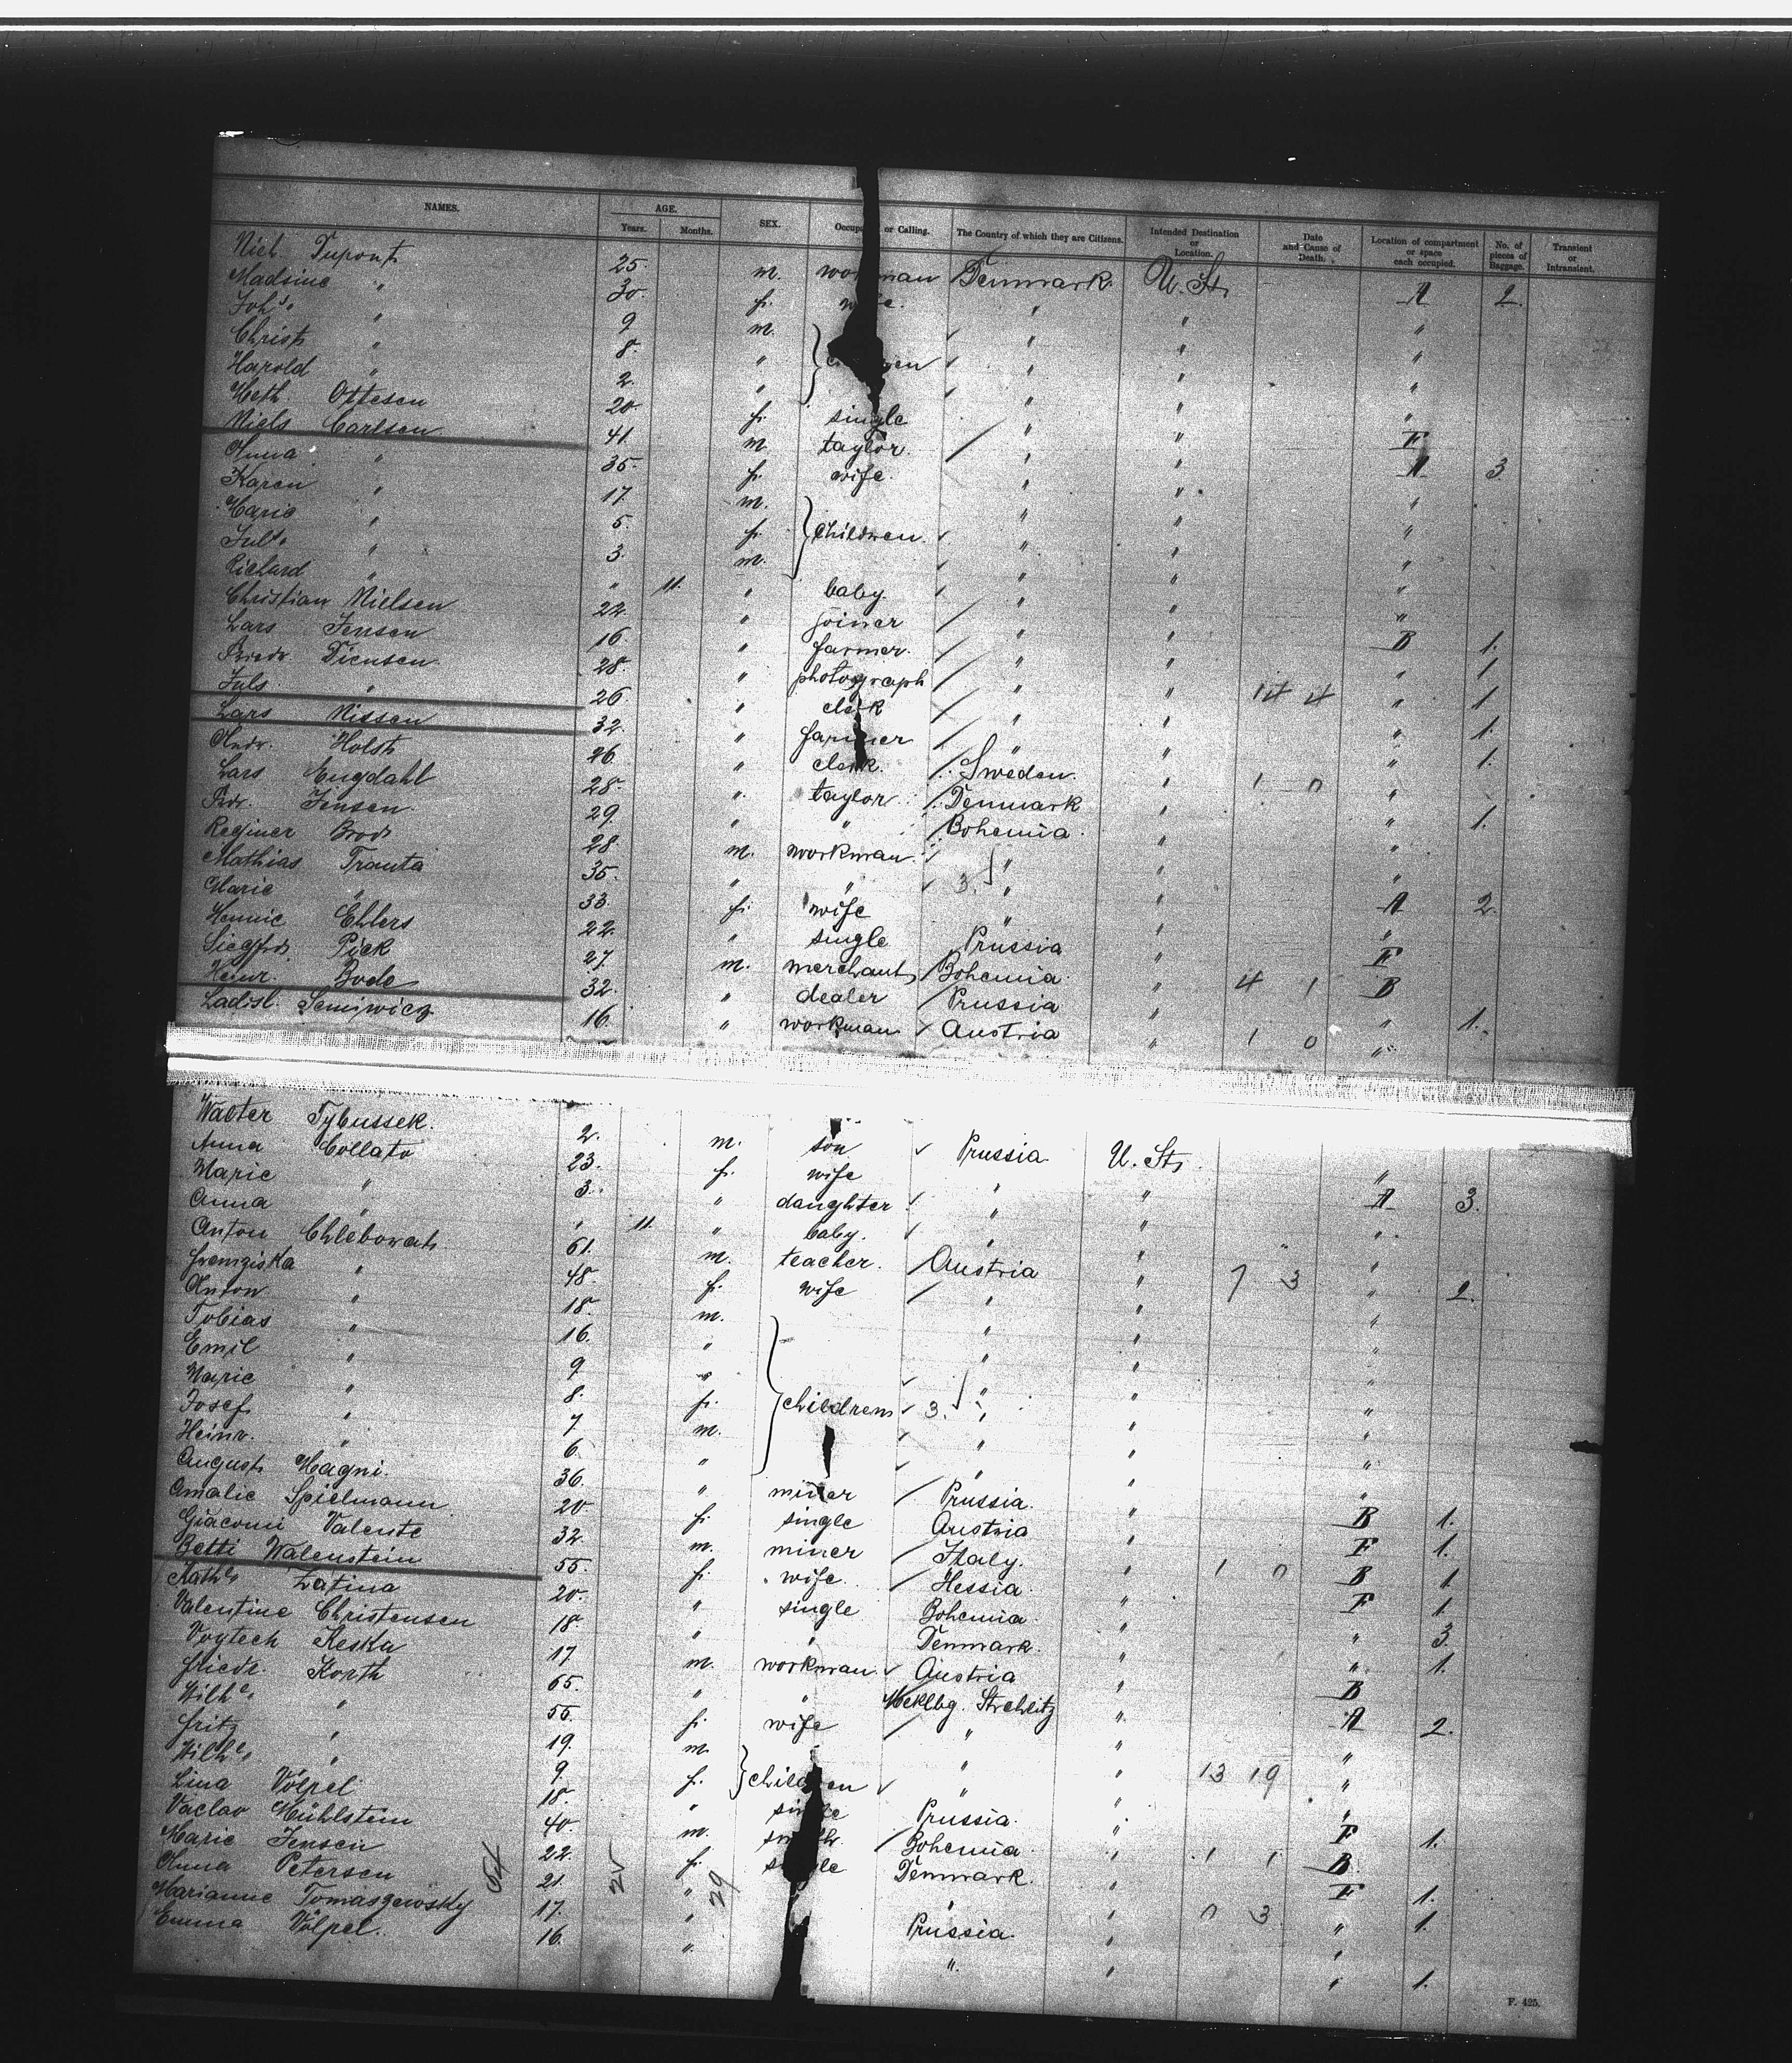 NAMES. AGE. Years. Months. SEX. Occupation or Calling. The Country of which they are Citizens. Intended Destination or Location. Date and Cause of Death. Location of compartment or space each occupied. No. of pieces of Baggage. Transient or Intransient.
Nich. Dupont 25. m. workman Denmark U. St. A 2.
Madsine " 30. f. wife. " " "
Joh's. " 9 m. " " "
Christ " 8. " children " " "
Harold " 2. " " " "
Meth. Ottesen 20 f. single " " F
Niels Carlsen 41. m. taylor " " A 3
Anna " 35. f. wife. " " "
Karen " 17. m. " " "
Marie " 5. f. children " " "
Jul's. " 3. m. " " "
Richard " " 11. " baby. " " "
Christian Nielsen 22. " joiner " " B 1.
Lars Jensen 16. " farmer. " " " 1
Diensen 28. " photograph " " 14 4 " 1
Juls " 26. " clerk " " " 1.
Lars Nissen 32. " farmer " " " 1.
Andr. Holst 26. " clerk. Sweden. " 1 0 "
Lars Engdahl 28. " taylor Denmark " " 1.
Jensen 29. " " Bohemia. " "
Reginer Brod 28. m. workman. " " "
Mathias Trauta 35. " " 3. " " A 2.
Marie " 33 f. wife " " "
Hennie Ehlers 22. " single Prussia " F
Siegfr. Pick 27. m. merchant Bohemia. " 4 1 B
Heinr. Bode 32. " dealer Prussia " " 1.
Ladisl. 16. " workman Austria " 1 0 "
Walter Tybussek. 2. m. son Prussia U. St. "
Anna Collato 23. f. wife " " A 3.
Marie " 3. " daughter " " "
Anna " " 11. " baby. " " "
Anton Chlebowat 61. m. teacher. Austria " 7 3 " 2.
Franziska " 48. f. wife " " "
Anton " 18. m. " " "
Tobias " 16. " " " "
Emil " 9. " " " "
Marie " 8. f. children 3. " " "
Josef " 7 m. " " "
Heinr. " 6. " " " "
August Magni. 36. " miner Prussia. " B 1.
Amalie Spielmann 20 f. single Austria " F 1.
Giacomi Valente 32. m. miner Italy. " 1 0 B 1
Betti Walenstein 55. f. wife. Hessia. " F 1.
Kath. Latina 20. " single Bohemia. " " 3.
Valentine Christensen 18. " " Denmark. " " 1.
Voytech Keska 17 m. workman. Austria " B
Friedr. Korth 65. " " Meklbg. Strelitz " A 2.
Wilh'e. " 55. f. wife " " "
Fritz " 19. m. " " 13 19 "
Wilh'e. " 9. f. children " " "
Lina Völpel 18. " single Prussia. " F 1.
Vaclav Mühlstein 40. m. Bohemia. " 1 1 B
Marie Jensen 22. f. single Denmark. " F 1.
Anna Petersen 21. " " " 0 3 " 1.
Marianne Tomaszewsky 17. " Prussia. " "
Emma Völpel. 16. " " " " 1.
54 25 29
F. 425.